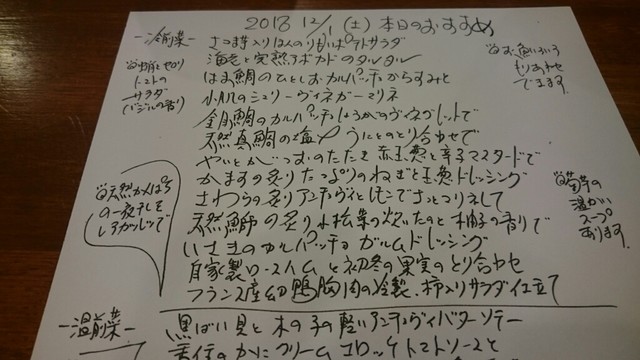 2018 12/1 (土) 本日のおすすめ
-冷前菜-
さつま芋入りほんのり甘いポテトサラダ
海老と完熟アボカドのタルタル
はお鯛のひとしおカルパッチョからすみと
小肌のシェリーヴィネガーマリネ
金目鯛のカルパッチョしょうがのヴィネグレットで
天然真鯛の塩〆 うにとのとり合わせで
やいとがつおのたたき 赤玉葱と辛子マスタードで
かますの炙り たっぷりのねぎと玉葱ドレッシング
さわらの炙りアンディーヴとレモンでさっとマリネして
天然鰤の炙り 小松菜の炊いたのと柚子の香りで
いさきのカルパッチョ ガルムドレッシング
自家製ロースハムと初冬の果実のとり合わせ
フランス産 鴨胸肉の冷製、柿入りサラダ仕立て
トマトの
サラダ
(バジルの香り)
お魚いろいろ
もりあわせ
できます
天然かんぱち
の一夜干しを
温かい
スープ
あります
-温前菜-
黒ばい貝と木の子の軽いアンディーヴバターソテー
香住のかにクリームコロッケトマトソースと